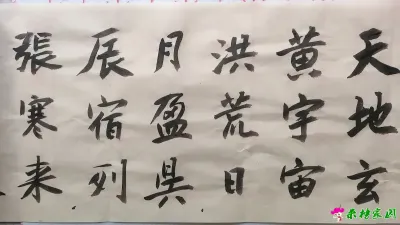 天地玄
黄宇宙
洪荒日
月盈昃
辰宿列
張寒来